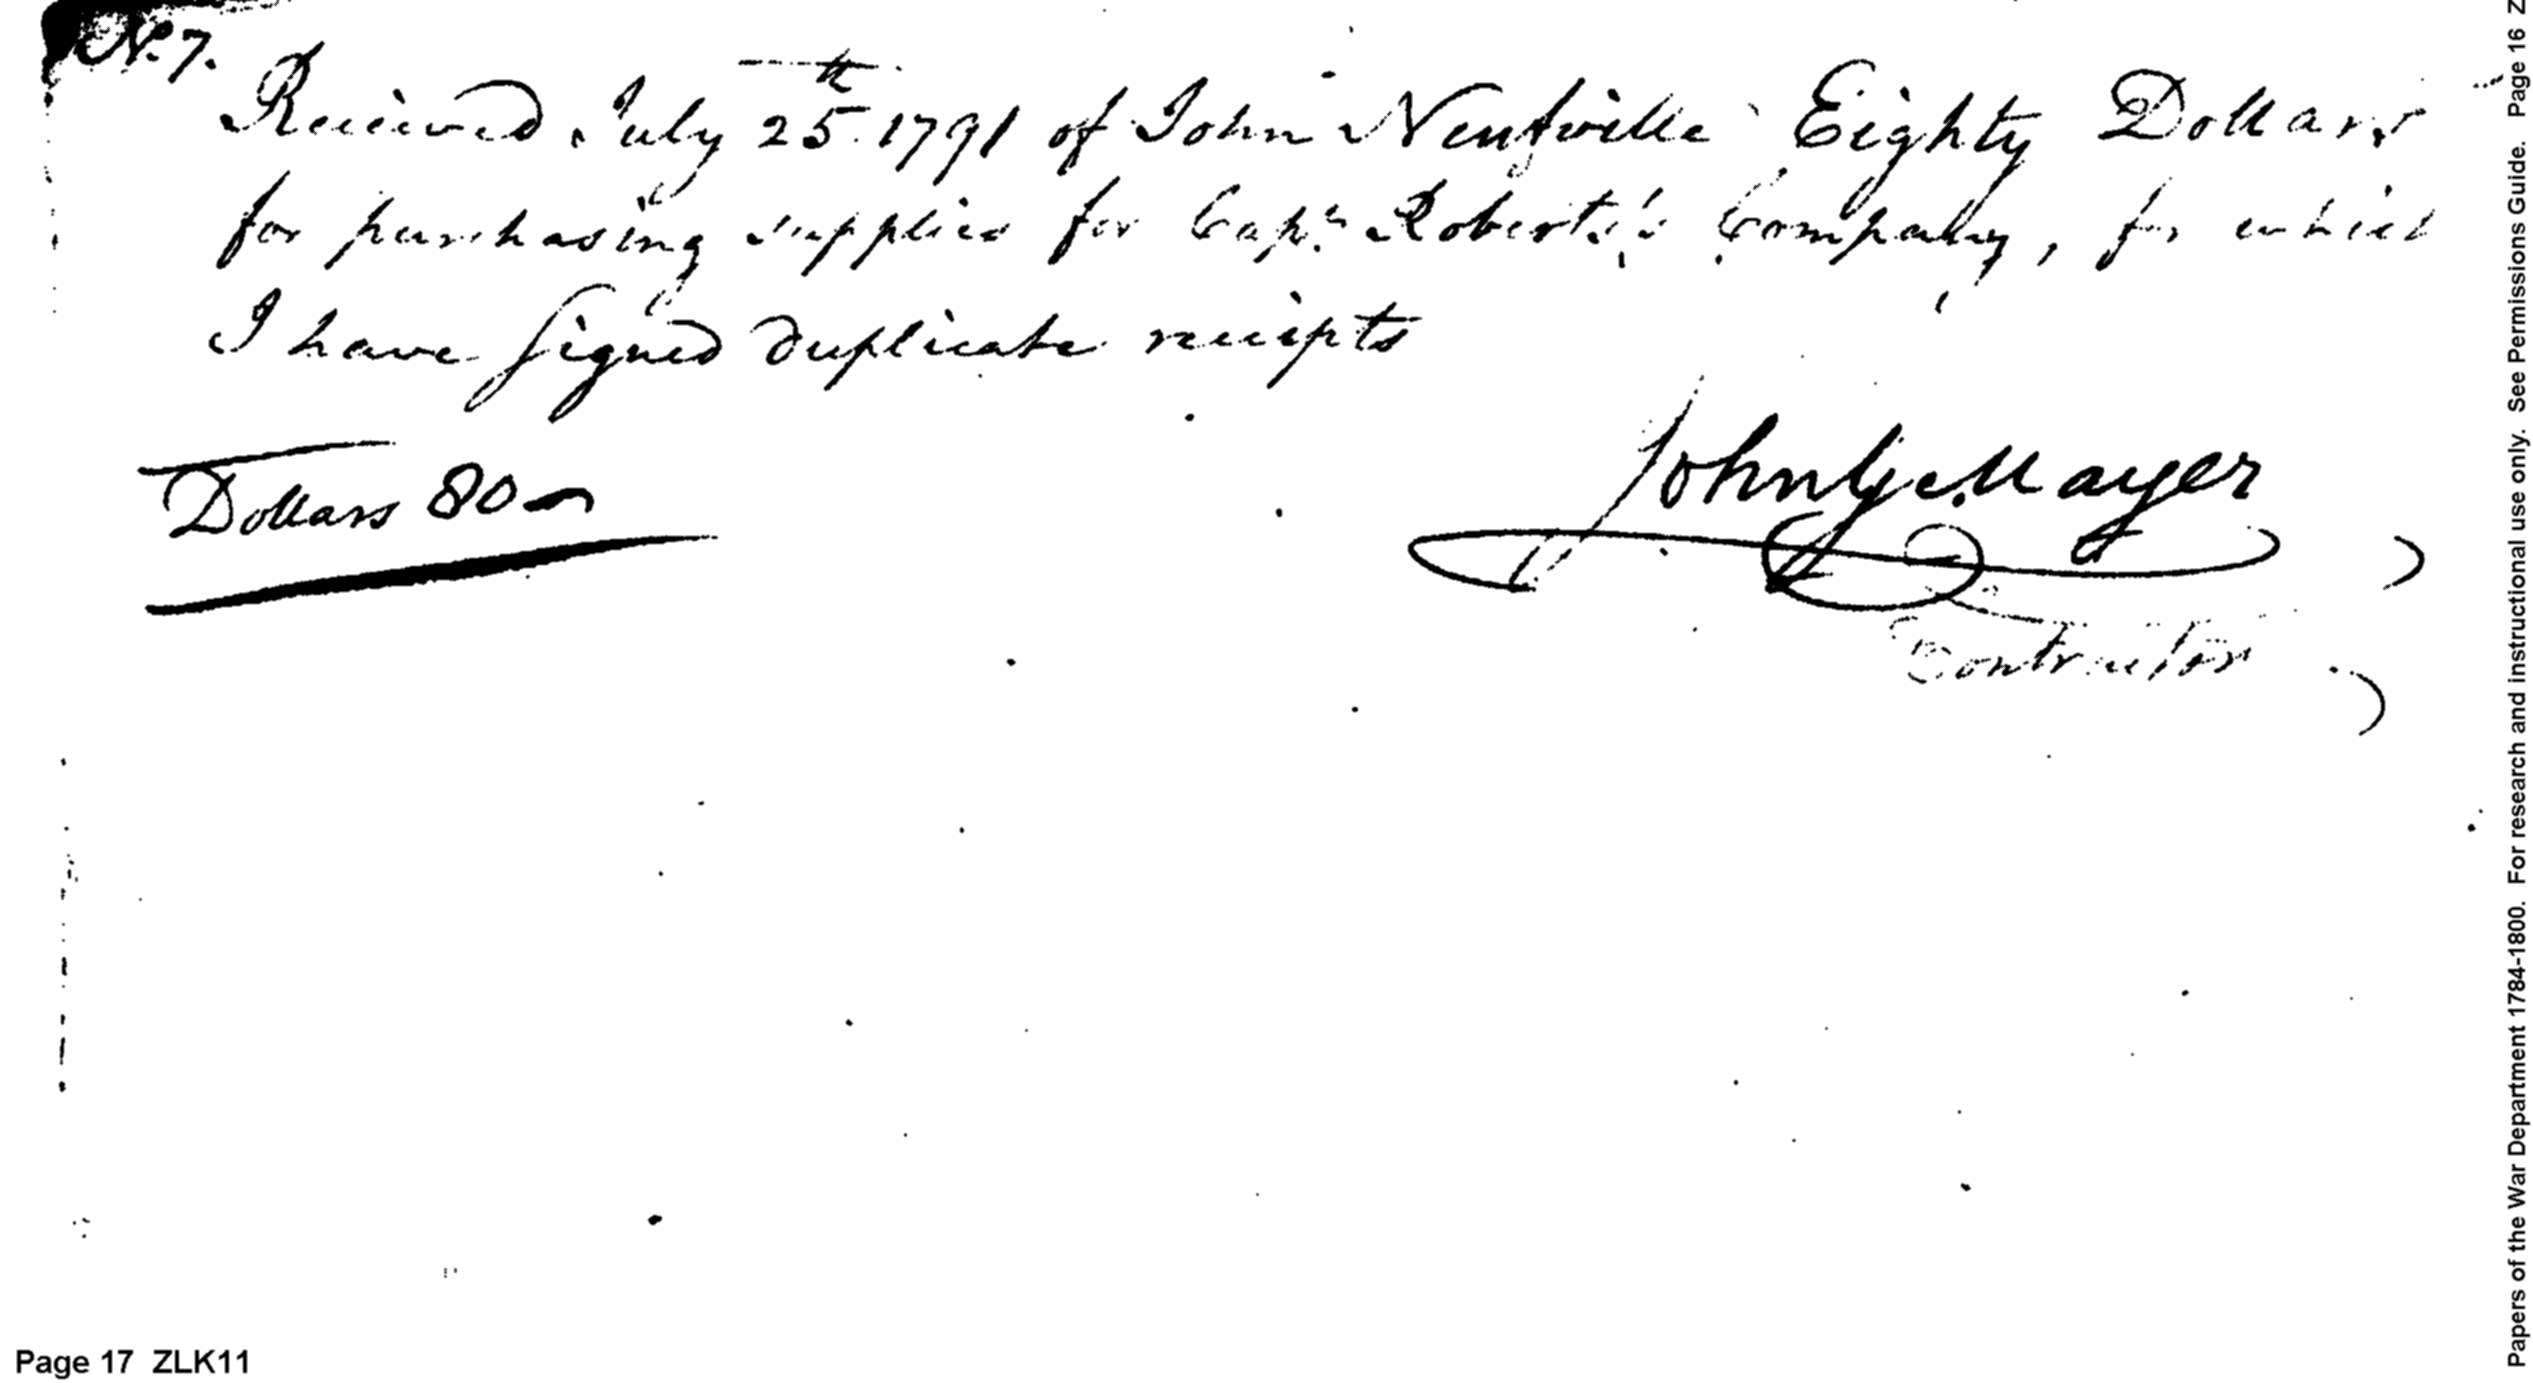 No. 7.
Received July 25th 1791 of John Neufville Eighty Dollars
for purchasing supplies for Capt. Roberts's Company, for which
I have signed duplicate receipts
Dollars 80
John G. Mayer
Contractor
Page 17 ZLK11
Papers of the War Department 1784-1800. For research and instructional use only. See Permissions Guide. Page 16 Z